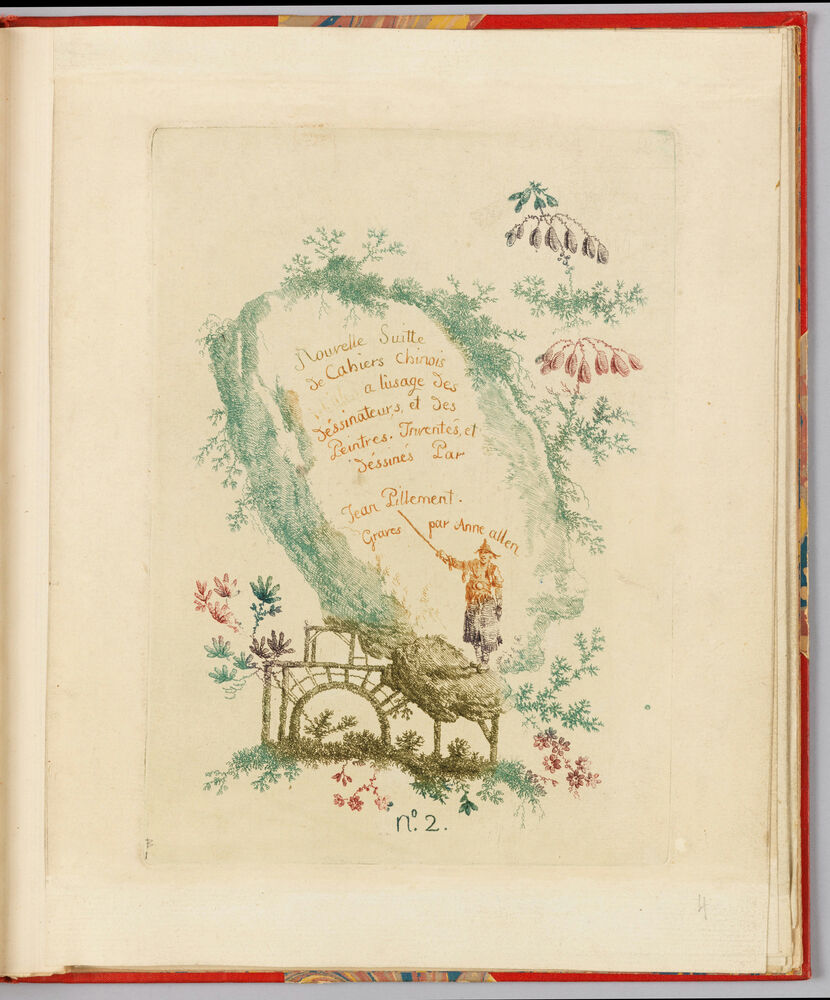 Nouvelle Suitte
de Cahiers chinois
a l'usage des
déssinateurs, et des
Peintres. Inventés, et
déssinés Par
Jean Pillement.
Graves par Anne allen
nº. 2.
4